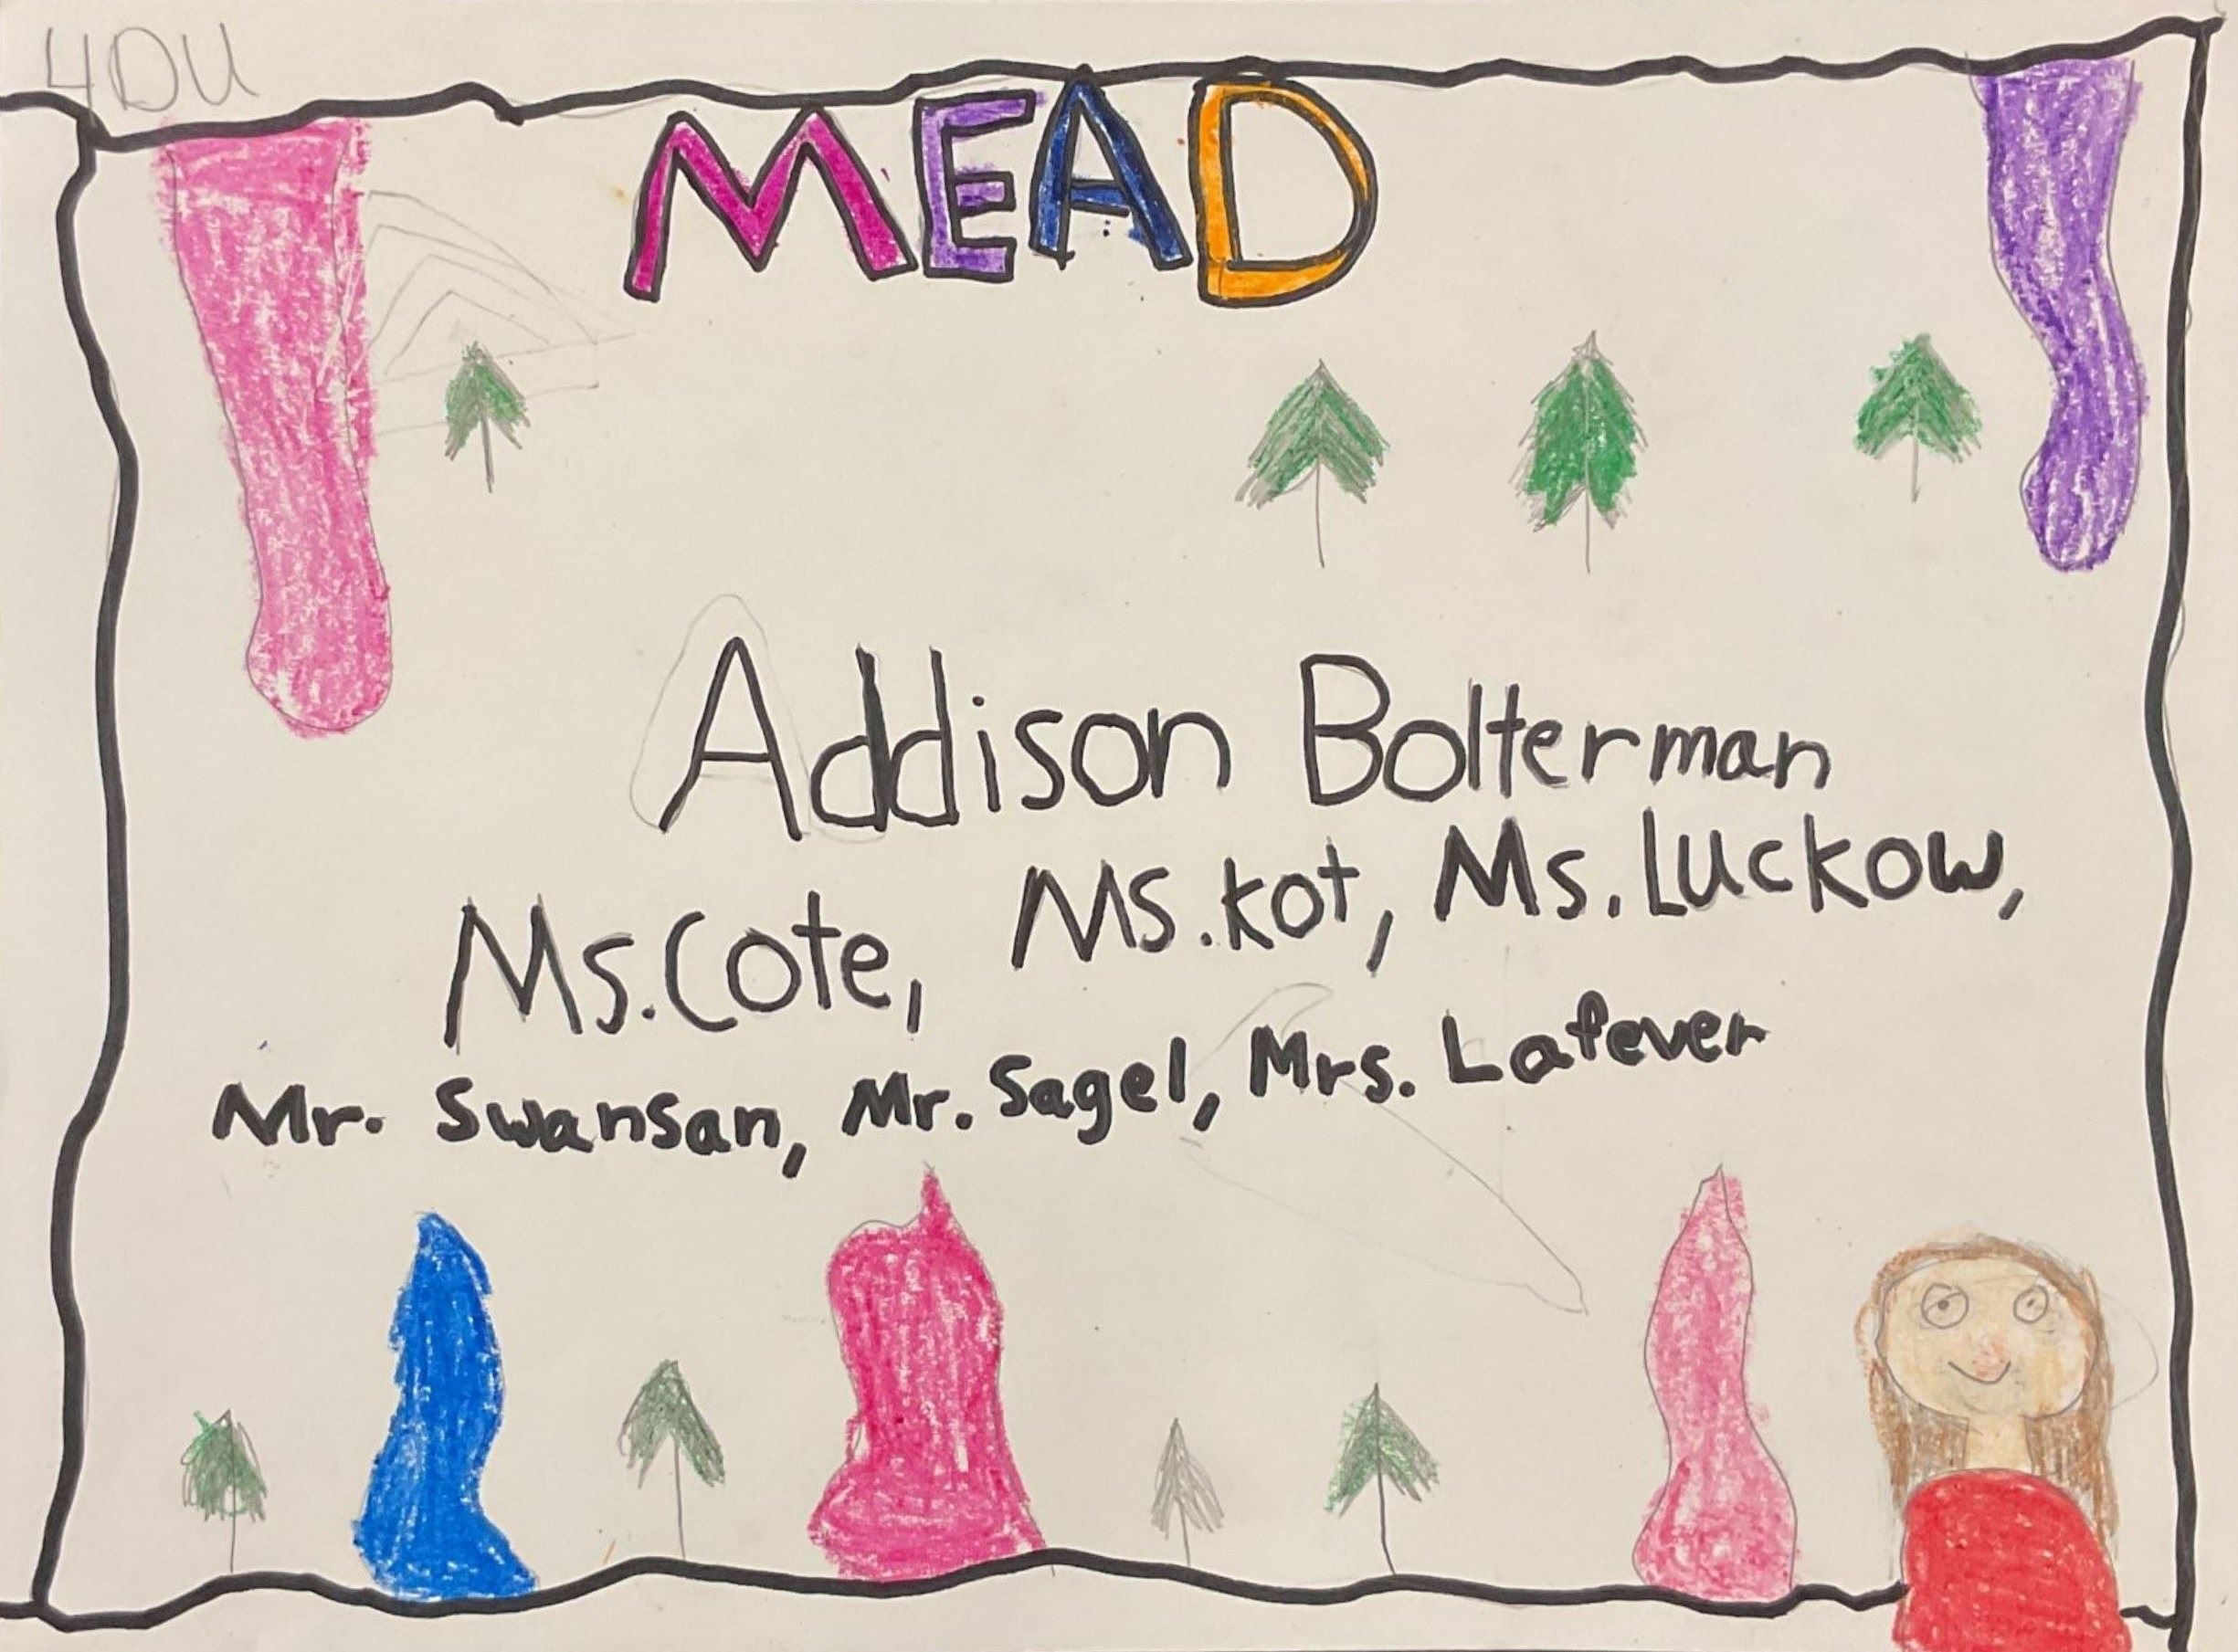 4DU
MEAD
Addison Bolterman
Ms.Cote, Ms.kot, Ms.Luckow,
Mr. Swansan, Mr. Sagel, Mrs. Lafever